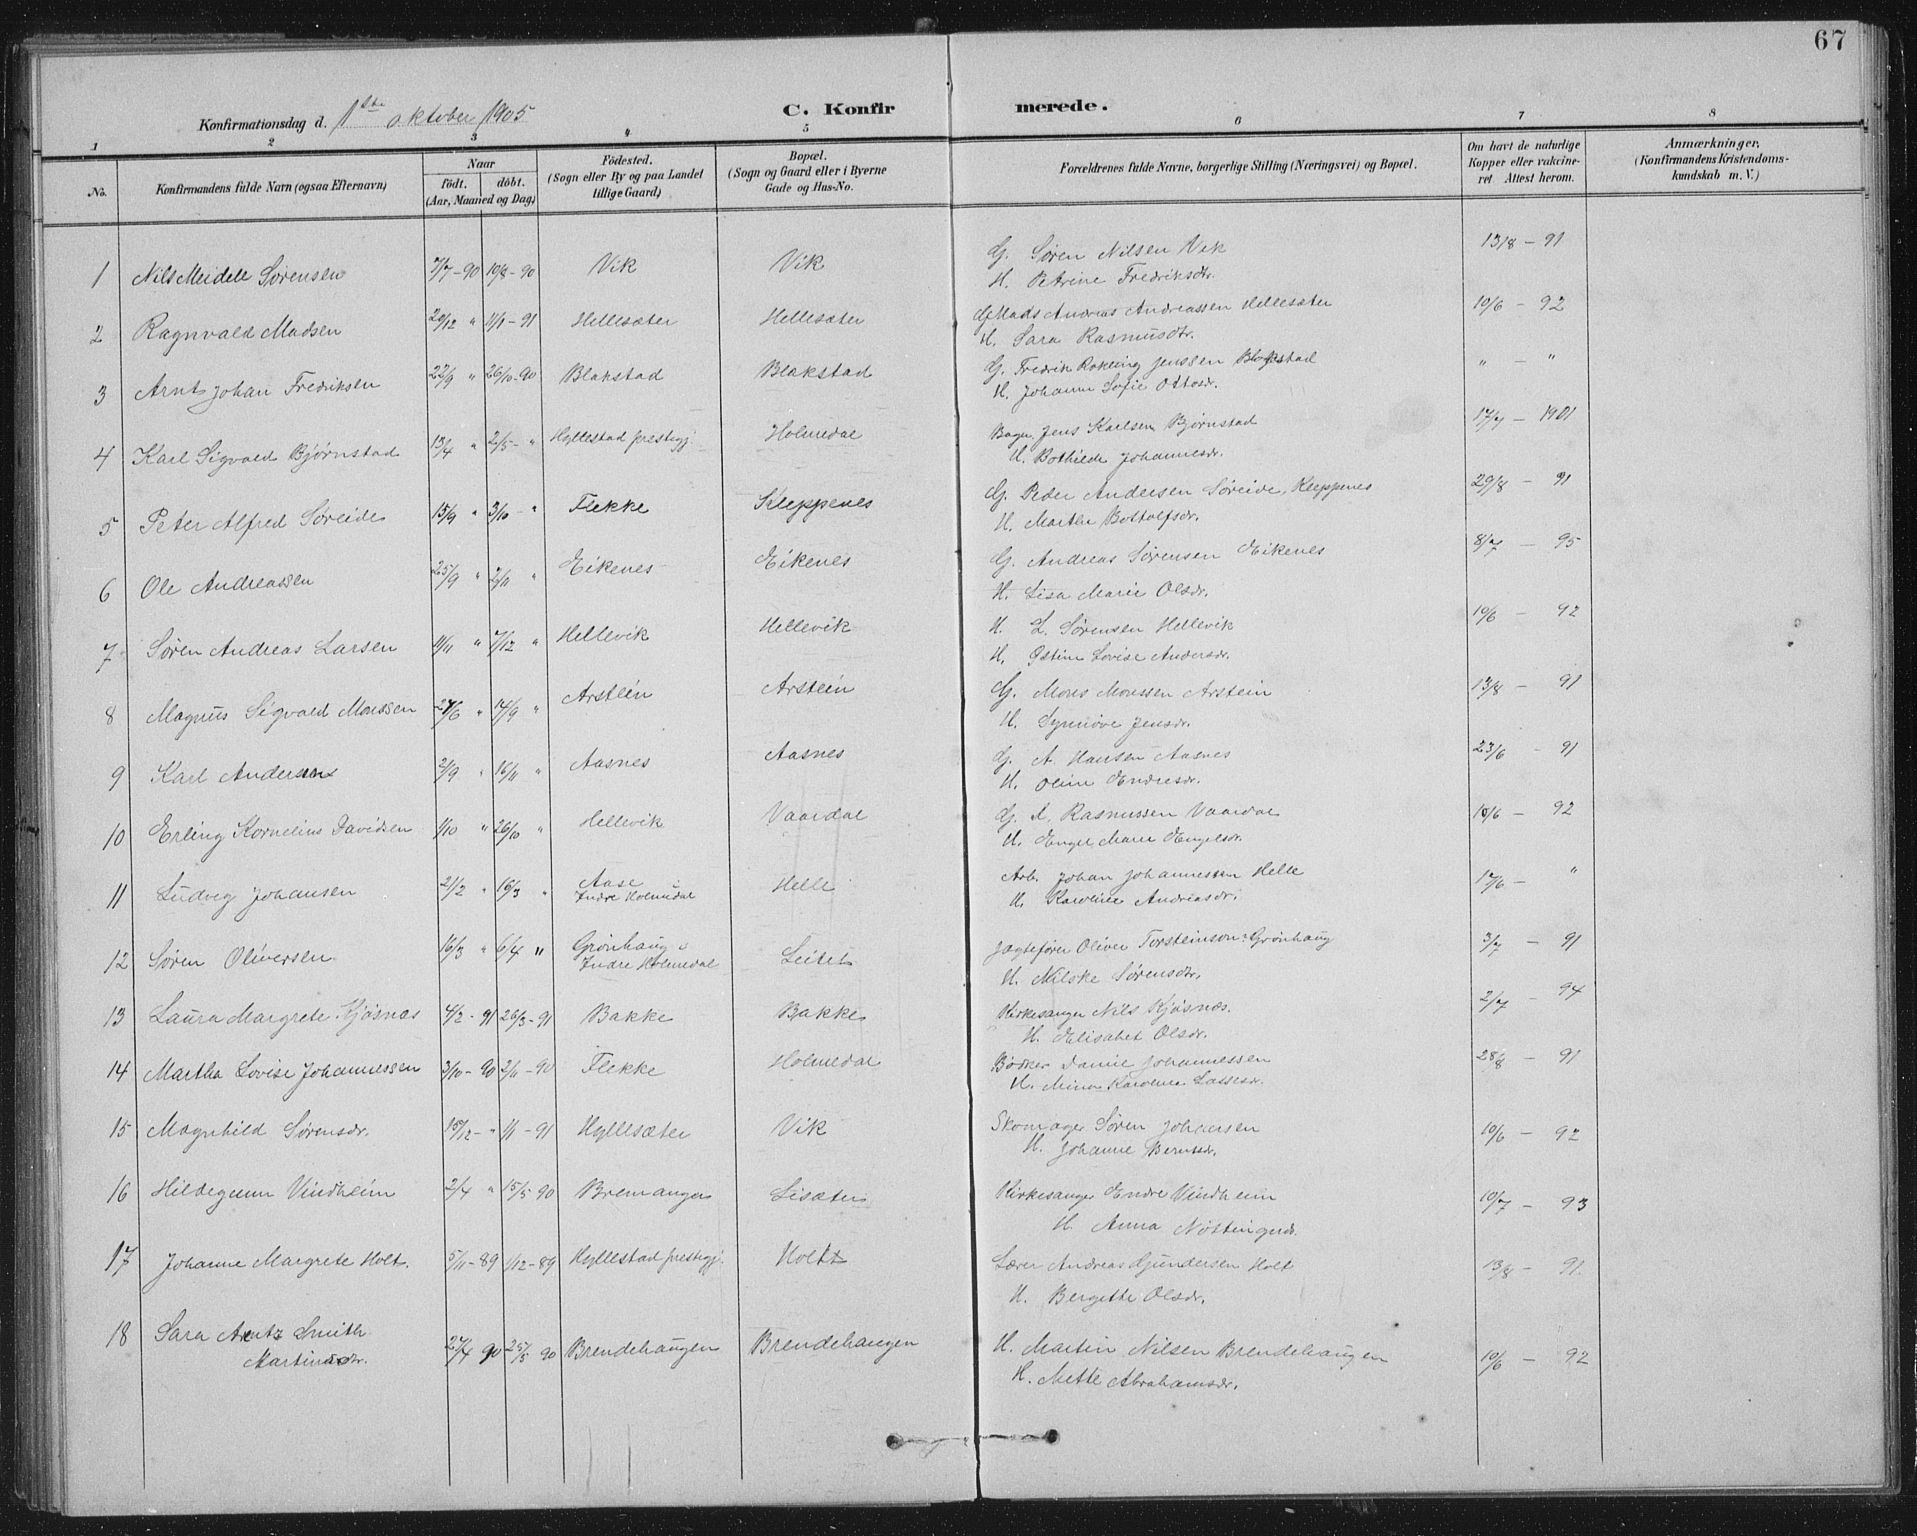 67
Konfirmationsdag d. 1ste oktober 1905
C. Konfirmerede.
1 2 3 4 5 6 7 8
No.
Konfirmandens fulde Navn (ogsaa Efternavn)
Naar
födt. döbt.
(Aar, Maaned og Dag)
Födested.
(Sogn eller By og paa Landet
tillige Gaard)
Bopæl.
(Sogn og Gaard eller i Byerne
Gade og Hus-No.
Forældrenes fulde Navne, borgerlige Stilling (Næringsvei) og Bopæl.
Om havt de naturlige
Kopper eller vakcine-
ret. Attest herom.
Anmærkninger,
(Konfirmandens Kristendoms-
kundskab m. V.)
1 Nils Meidell Sørensen 7/7-90 10/8-90 Vik Vik G. Søren Nilsen Vik 13/8 - 91
H. Petrine Fredriksdr.
2 Ragnvald Madsen 20/12 " 11/1-91 Hellesæter Hellesæter G. Mads Andreas Andreassen Hellesæter 10/6 - 92
H. Sara Rasmusdr.
3 Arnt Johan Fredriksen 22/9 " 26/10-90 Blakstad Blakstad G. Fredrik Jenssen Blakstad " - "
H. Johanne Sofie Ottosr.
4 Karl Sigvald Bjørnstad 13/4 " 2/5- " Hyllestad prestegj. Holmedal Bager Jens Karlsen Bjørnstad 17/7 - 1901
H. Bothilde Johannesdr.
5 Peter Alfred Søreide 15/9 " 3/10- " Flekke Kleppenes G. Peder Andersen Søreide, Kleppenes 29/8 - 91
H. Marthe Bottolfsdr.
6 Ole Andreassen 25/9 " 2/11 " Eikenes Eikenes G. Andreas Sørensen Eikenes 8/7 - 95
H. Lisa Marie Olsdr.
7 Søren Andreas Larsen 11/11 " 7/12 " Hellevik Hellevik H. L. Sørensen Hellevik 10/6 - 92
H. Lovise Andersdr.
8 Magnus Sigvald Monssen 27/6 " 14/9 " Arstein Arstein G. Mons Monssen Arstein 13/8 - 91
H. Synnøve Jensdr.
9 Karl Andersens 2/9 " 16/11 " Aasnes Aasnes G. A. Hansen Aasnes 23/6 - 91
H. Oline Endresdr.
10 Erling Kornelius Davidsen 1/10 " 26/10 " Hellevik Vaardal G. Rasmussen Vaardal 10/6 - 92
H. Engel Marie Engelsdr.
11 Ludvig Johansen 21/2 " 16/3 " Aase i Helle Arb. Johan Johannessen Helle 17/6 - "
Indre Holmedal H. Karoline Andreasdr.
12 Søren Oliversen 16/3 " 6/4 " Grønhaug i Leitet Jagtefører Oliver Torsteinson Grønhaug 3/7 - 91
Indre Holmedal H. Nilske Sørensdr.
13 Laura Margrete Kjøsnæs 4/2-91 26/3-91 Bakke Bakke Kirkesanger Nils Kjøsnæs. 2/7 - 94
H. Elisabet Olsdr.
14 Martha Lovise Johannessen 3/10-90 2/11-90 Flekke Holmedal Bødker Daniel Johannessen 28/8 - 91
H. Mina Karoline Lassesdr.
15 Magnhild Sørensdr. 15/12- " 1/1-91 Hyllesæter Vik Skomager Søren Johansen 10/6 - 92
H. Johanne Berntsdr.
16 Hildegunn Vindheim 2/4 " 15/5 90 Bremanger Lisæter Kirkesanger Endre Vindheim 10/7 - 93
H. Anna
17 Johanne Margrete Holt. 5/11-89 1/12-89 Hyllestad prestegj. Holt Lærer Andreas Gjundersen Holt 13/8 - 91
H. Bergitte Olsdr.
18 Sara Arentz Smith
Martinsdr. 27/4 90 25/5 90 Brendehaugen Brendehaugen H. Martin Nilsen Brendehaugen 10/6 - 92
H. Mette Abrahamsdr.